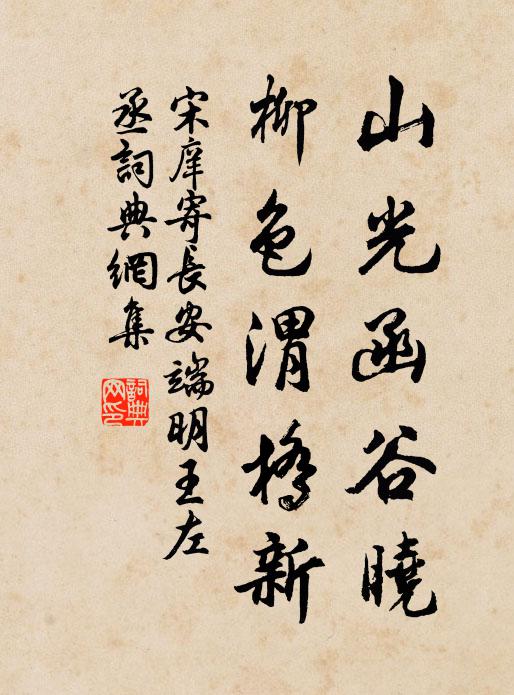 山光函谷曉
柳色渭橋新
宋庠寄長安端明王左
丞詞典網集
詞典
网印